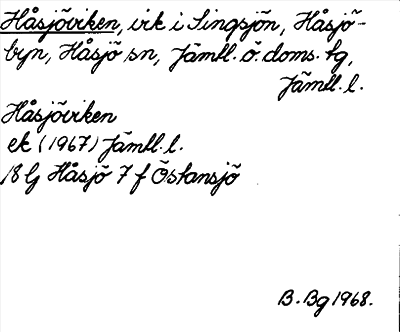 Håsjöviken, vik i Singsjön, Håsjö-
byn, Håsjö sn, Jämtl. ö. doms. tg,
Jämtl. l.
Håsjöviken
ek (1967) Jämtl. l.
18 G Håsjö 7 f Östansjö
B. Bg 1968.